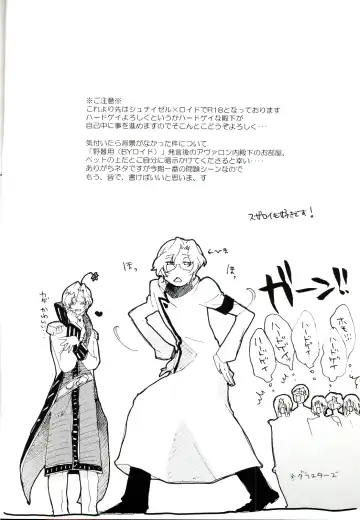 ※ご注意※
これより先はシュナイゼル×ロイドでR18となっております
ハードゲイよろしくというかハードゲイな殿下が
自己中に事を進めますのでそこんとこどうぞよろしく・・・
気付いたら背景がなかった件について
「野暮用（BYロイド）」発言後のアヴァロン内殿下のお部屋、
ベットの上だとご自分に暗示かけてくださると幸い・・・
ありがちネタですが今期一番の問題シーンなので
もう、皆で、書けばいいと思いま、す
スザロイも好きです！
ガーン!!
ほっ
ほっ
※グラスターズ